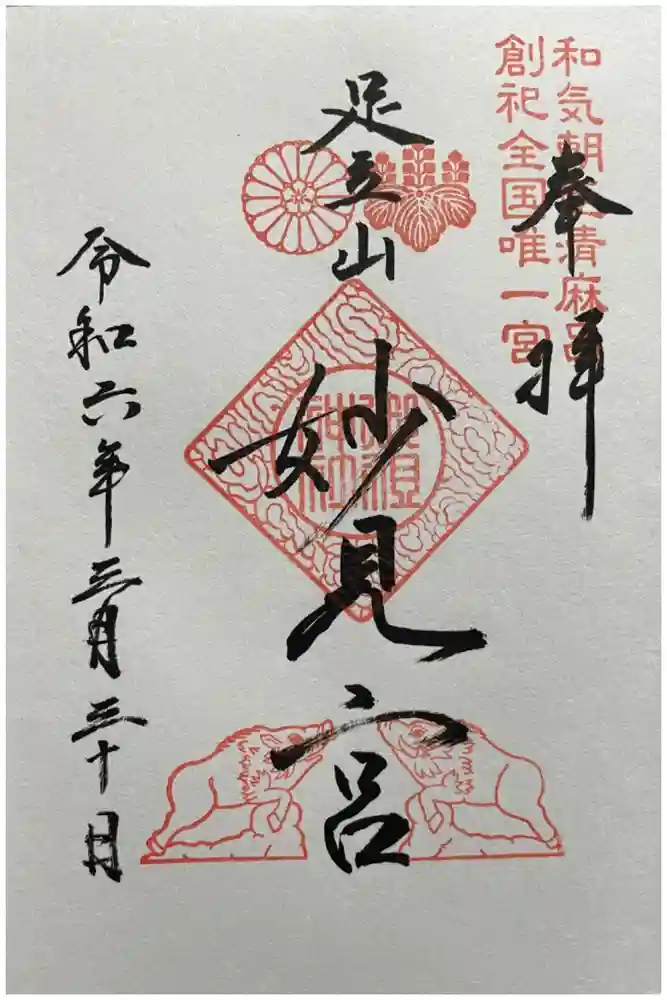 和気朝臣清麻呂
創祀全国唯一宮
奉拝
足立山
妙見宮
御祖
神社
令和六年三月三十日